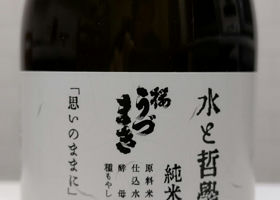 水と哲學
純米
櫻うづまき
原料米
仕込水
酵母
種もやし
「思いのままに」